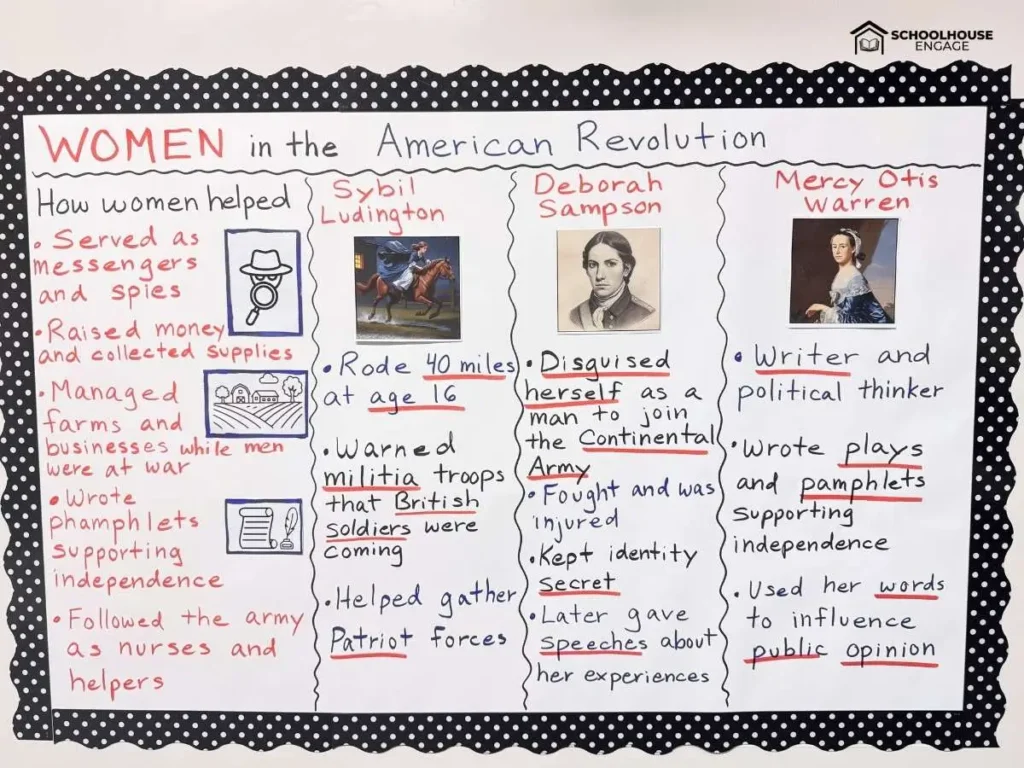 SCHOOLHOUSE
ENGAGE
WOMEN in the American Revolution
How women helped
• Served as
messengers
and spies
• Raised money
and collected supplies
• Managed
farms and
businesses while men
were at war
• Wrote
phamphlets
supporting
independence
• Followed the army
as nurses and
helpers
Sybil
Ludington
• Rode 40 miles
at age 16
• Warned
militia troops
that British
soldiers were
coming
• Helped gather
Patriot forces
Deborah
Sampson
• Disguised
herself as a
man to join
the Continental
Army
• Fought and was
injured
• Kept identity
secret
• Later gave
speeches about
her experiences
Mercy Otis
Warren
• Writer and
political thinker
• Wrote plays
and pamphlets
supporting
independence
• Used her words
to influence
public opinion